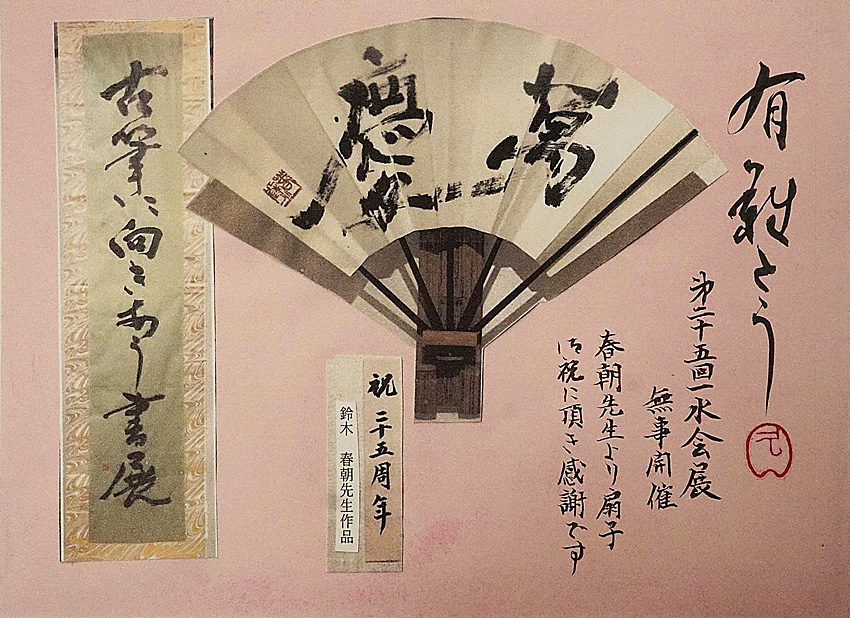 有難とう
第二十五回一水会展
無事開催
春朝先生より扇子
御祝に頂き感謝です
萬慶
祝 二十五周年
鈴木 春朝先生作品
古筆に向きあう書展